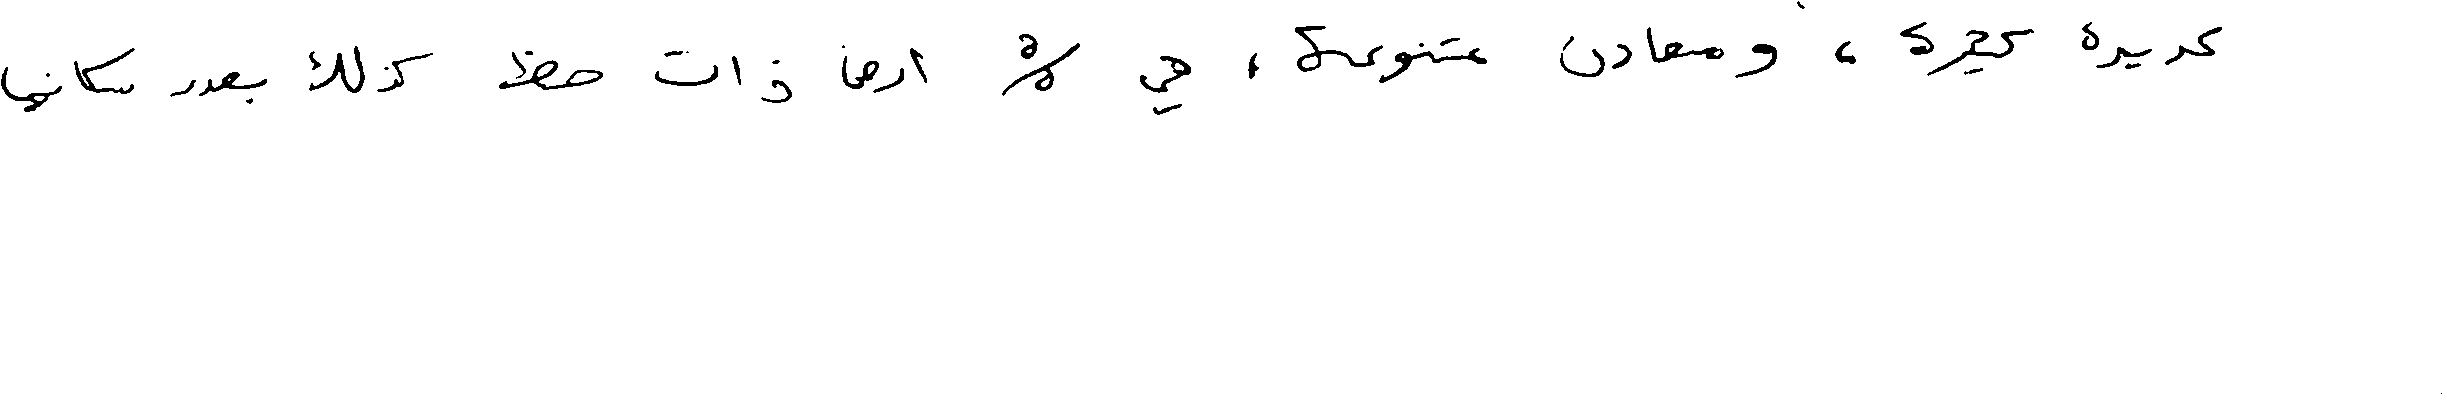 عديدة كبيرة ، ومعادن متنوعة ، هي % ارض ذات حظ كذلك بعدد سكانها